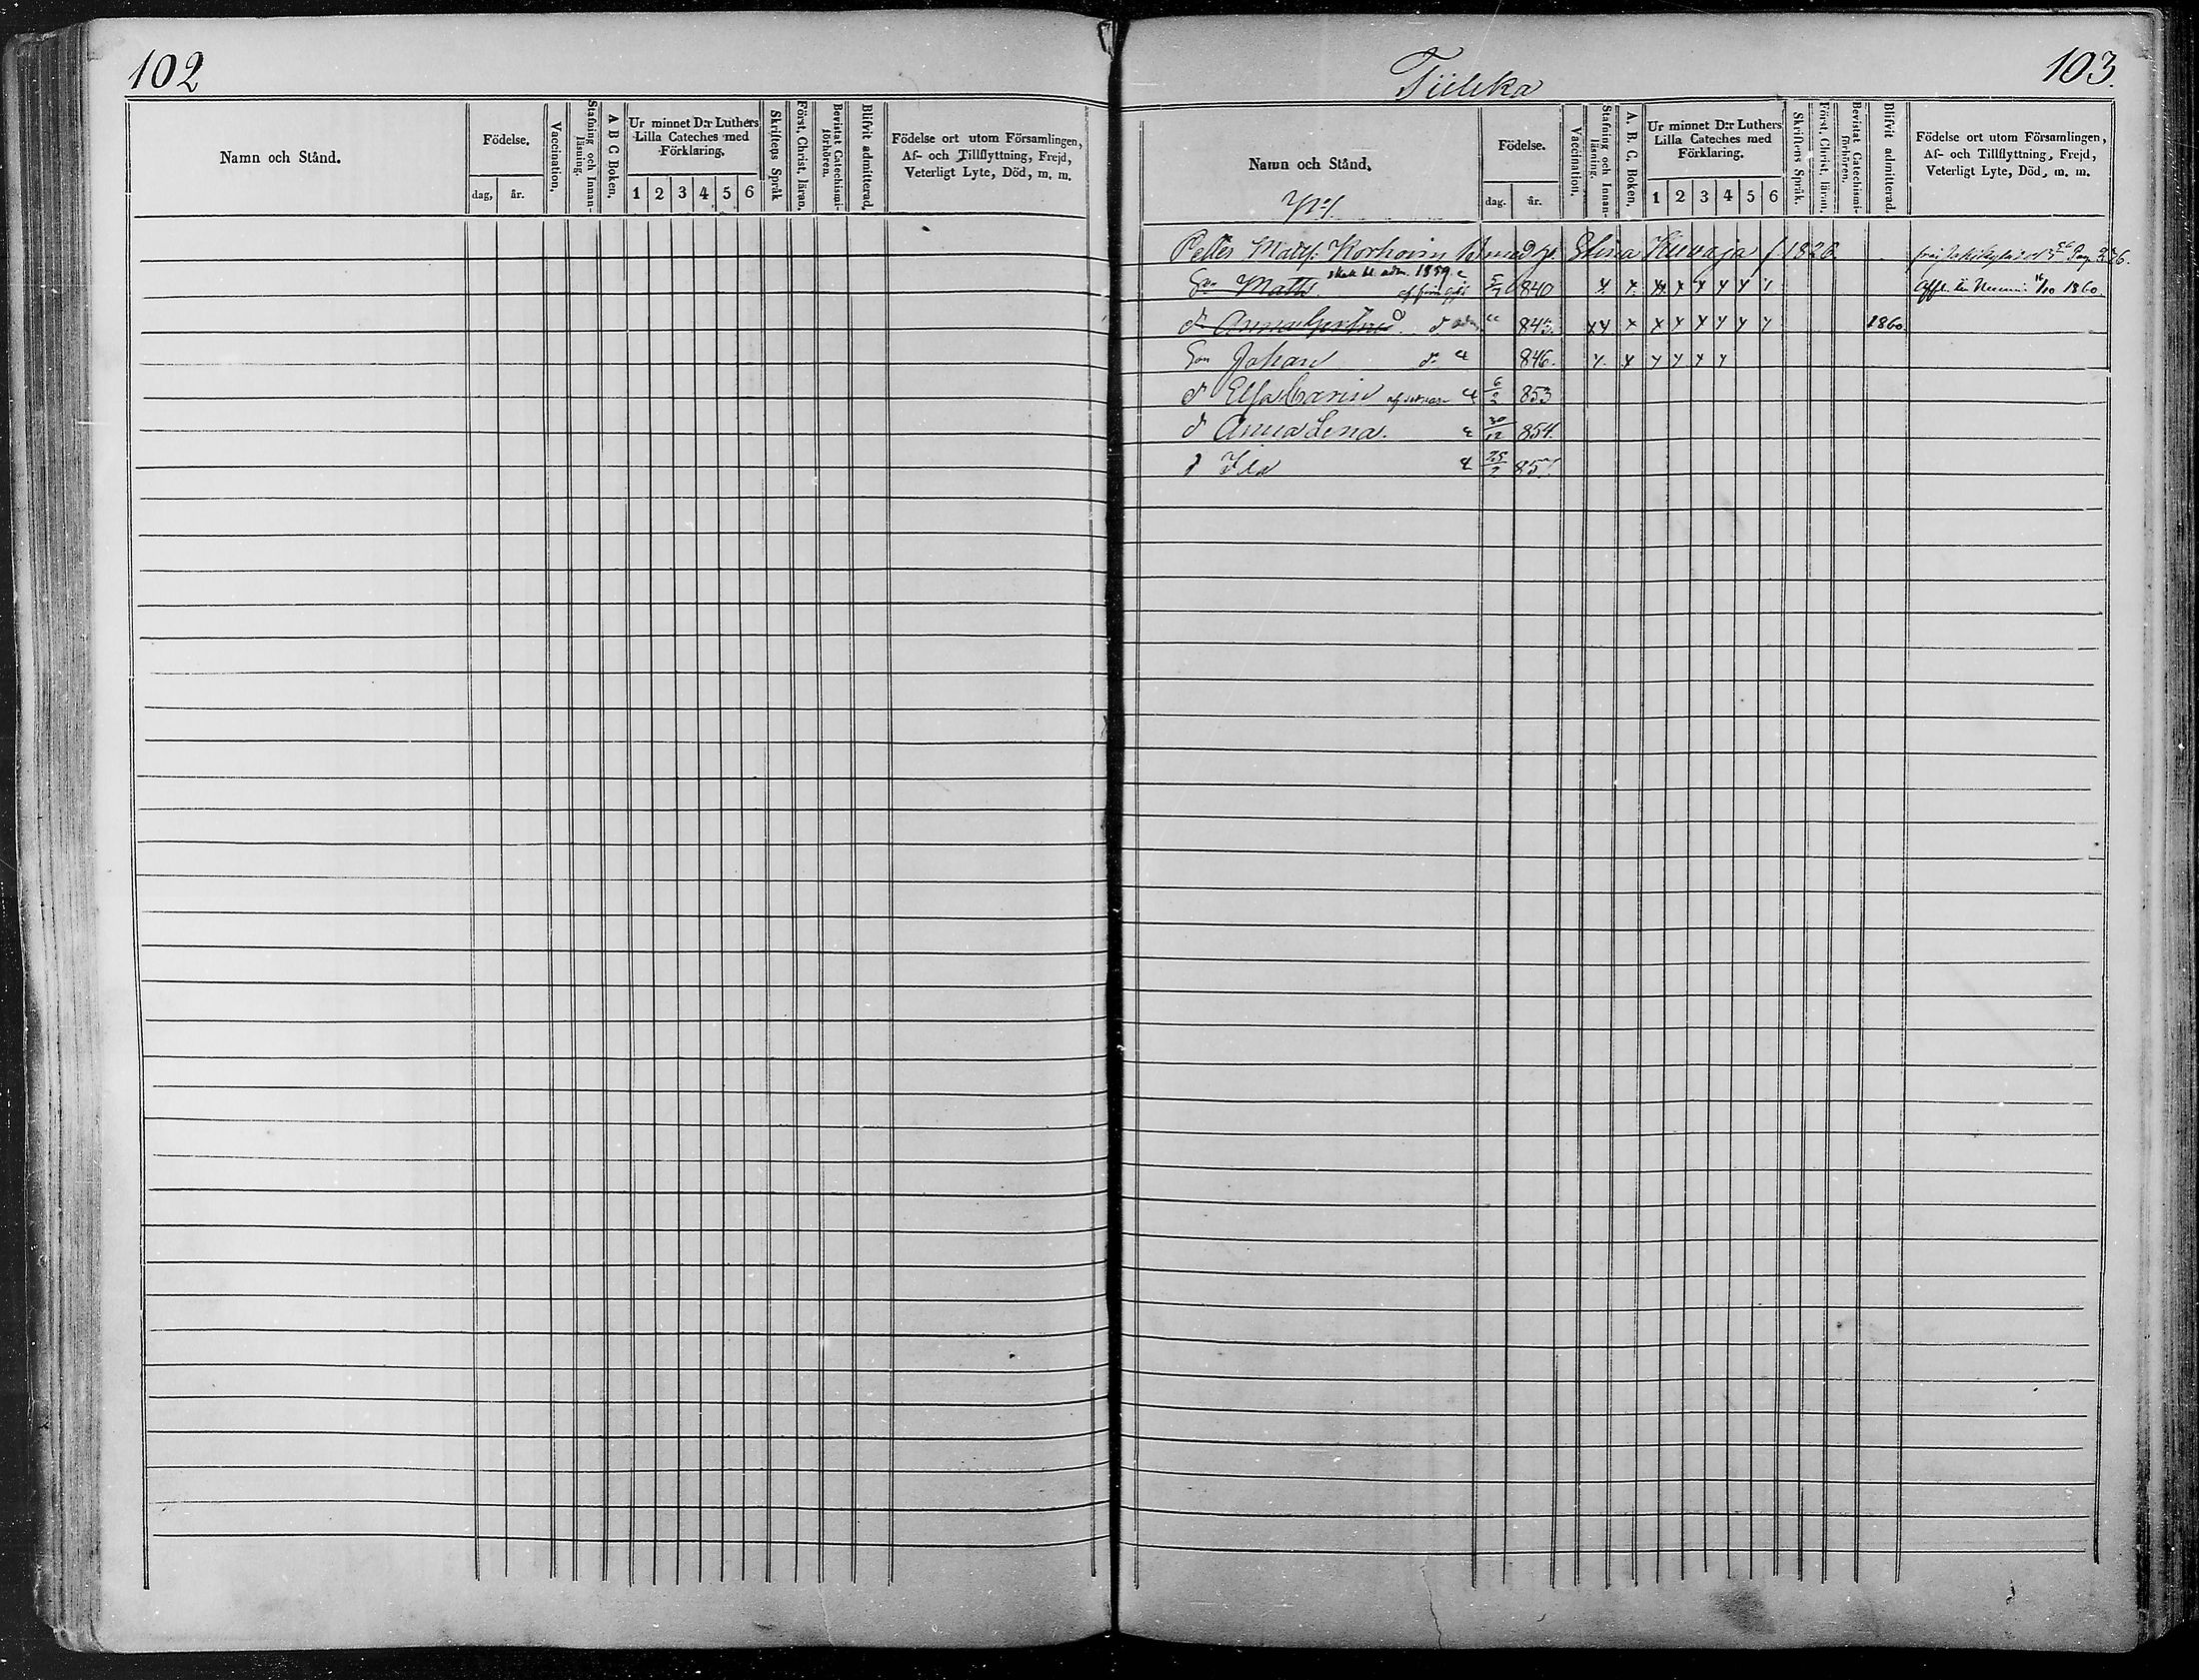 102
Namn och Stånd.
Födelse.
dag, år.
Vaccination.
Stafning och Innan-
läsning.
A B C Boken.
Ur minnet D:r Luthers
Lilla Cateches med
Förklaring.
1 2 3 4 5 6
Skriftens Språk
Först. Christ. läran.
Bevistat Catechismi-
förhören.
Blifvit admitterad.
Födelse ort utom Församlingen,
Af- och Tillflyttning, Frejd,
Veterligt Lyte, Död, m. m.
103.
Namn och Stånd.
Födelse.
dag. år.
Vaccination.
Stafning och Innan-
läsning.
A. B. C. Boken.
Ur minnet D:r Luthers
Lilla Cateches med
Förklaring.
1 2 3 4 5 6
Skriftens Språk.
Först. Christ. läran.
Bevistat Catechismi-
förhören.
Blifvit admitterad.
Födelse ort utom Församlingen,
Af- och Tillflyttning, Frejd,
Veterligt Lyte, Död, m. m.
Petter Korhoin Stina 1826
adm. 1859.
Son Matts 5/7 840 x x x x x x x x 1860.
d 845. xx x x x x x x x 1860.
Son Johan d 846. x x x x x x
d Elsa Carin 6/2 853
d Anna Lena. 30/12 854.
d 857.